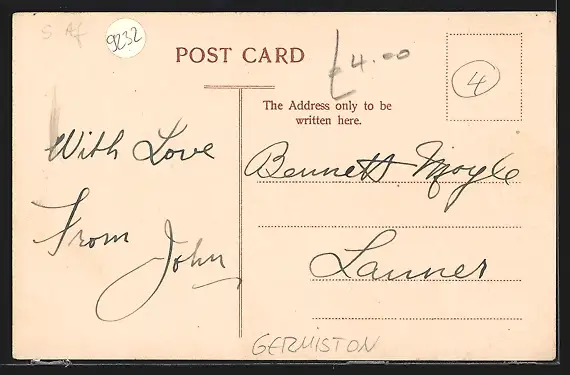 S Af
9232
POST CARD
£4.00
4
The Address only to be
written here.
With Love
From John
Bennett Moyle
Lanner
GERMISTON